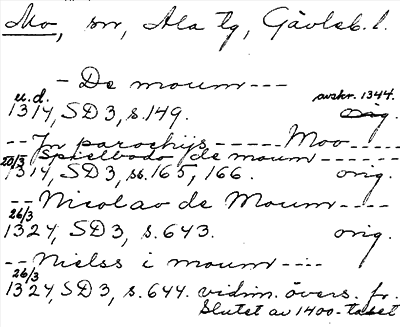 Mo, sn, Ala tg, Gävleb. l.
- De moum ---
u.d. avskr. 1344.
1314, SD 3, s. 149. orig.
-- In parochijs ----- Moo -----
Spielbodo de moum -----
20/3
1314, SD 3, ss. 165, 166. orig.
-- Nicolao de Moum ----
26/3
1324, SD 3, s. 643. orig.
-- Nielss i moum ----
26/3
1324, SD 3, s. 644. vidim. övers. fr.
Slutet av 1400-talet